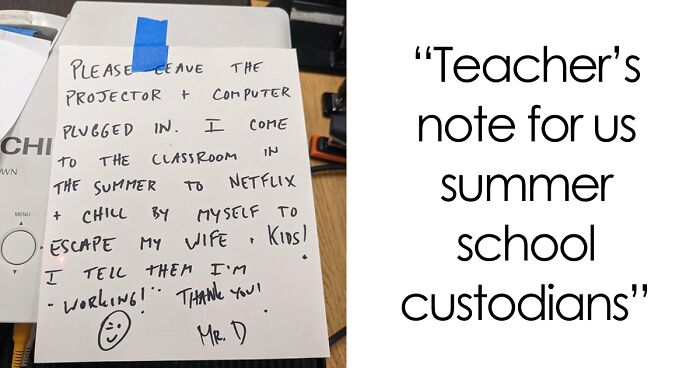 PLEASE LEAVE THE
PROJECTOR + COMPUTER
PLUGGED IN. I COME
TO THE CLASSROOM IN
THE SUMMER TO NETFLIX
+ CHILL BY MYSELF TO
ESCAPE MY WIFE + KIDS!
I TELL THEM I'M
"WORKING!" THANK YOU!
MR. D
CHI
WN
MENU
“Teacher’s
note for us
summer
school
custodians”